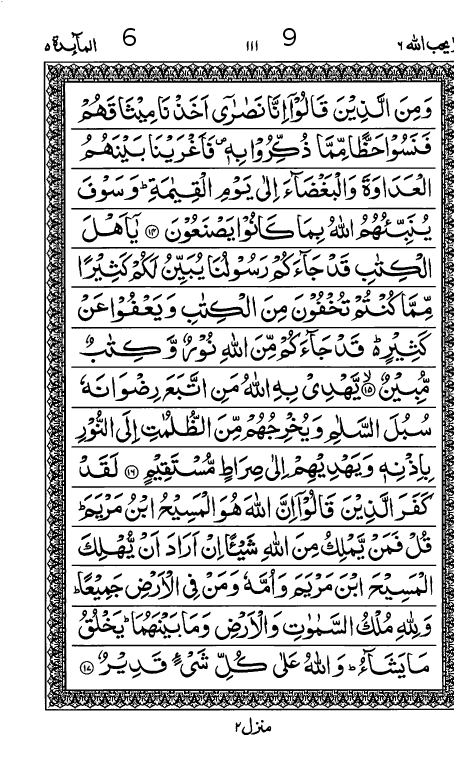 لا يحب الله ٦ 9 ١١١ 6 المآئدة ٥
وَمِنَ الَّذِيْنَ قَالُوْۤا اِنَّا نَصٰرٰۤى اَخَذْنَا مِيْثَاقَهُمْ
فَنَسُوْا حَظًّا مِّمَّا ذُكِّرُوْا بِهٖ ۪ فَاَغْرَيْنَا بَيْنَهُمُ
الْعَدَاوَةَ وَالْبَغْضَآءَ اِلٰى يَوْمِ الْقِيٰمَةِ ؕ وَسَوْفَ
يُنَبِّئُهُمُ اللّٰهُ بِمَا كَانُوْا يَصْنَعُوْنَ ﴿۱۴﴾ يٰۤاَهْلَ
الْكِتٰبِ قَدْ جَآءَكُمْ رَسُوْلُنَا يُبَيِّنُ لَكُمْ كَثِيْرًا
مِّمَّا كُنْتُمْ تُخْفُوْنَ مِنَ الْكِتٰبِ وَيَعْفُوْا عَنْ
كَثِيْرٍ ؕ۬ قَدْ جَآءَكُمْ مِّنَ اللّٰهِ نُوْرٌ وَّكِتٰبٌ
مُّبِيْنٌ ﴿۱۵﴾ۙ يَّهْدِيْ بِهِ اللّٰهُ مَنِ اتَّبَعَ رِضْوَانَهٗ
سُبُلَ السَّلٰمِ وَيُخْرِجُهُمْ مِّنَ الظُّلُمٰتِ اِلَى النُّوْرِ
بِاِذْنِهٖ وَيَهْدِيْهِمْ اِلٰى صِرَاطٍ مُّسْتَقِيْمٍ ﴿۱۶﴾ لَقَدْ
كَفَرَ الَّذِيْنَ قَالُوْۤا اِنَّ اللّٰهَ هُوَ الْمَسِيْحُ ابْنُ مَرْيَمَ ؕ
قُلْ فَمَنْ يَّمْلِكُ مِنَ اللّٰهِ شَيْـًٔا اِنْ اَرَادَ اَنْ يُّهْلِكَ
الْمَسِيْحَ ابْنَ مَرْيَمَ وَاُمَّهٗ وَمَنْ فِي الْاَرْضِ جَمِيْعًا ؕ
وَلِلّٰهِ مُلْكُ السَّمٰوٰتِ وَالْاَرْضِ وَمَا بَيْنَهُمَا ؕ يَخْلُقُ
مَا يَشَآءُ ؕ وَاللّٰهُ عَلٰى كُلِّ شَيْءٍ قَدِيْرٌ ﴿۱۷﴾
منزل ٢